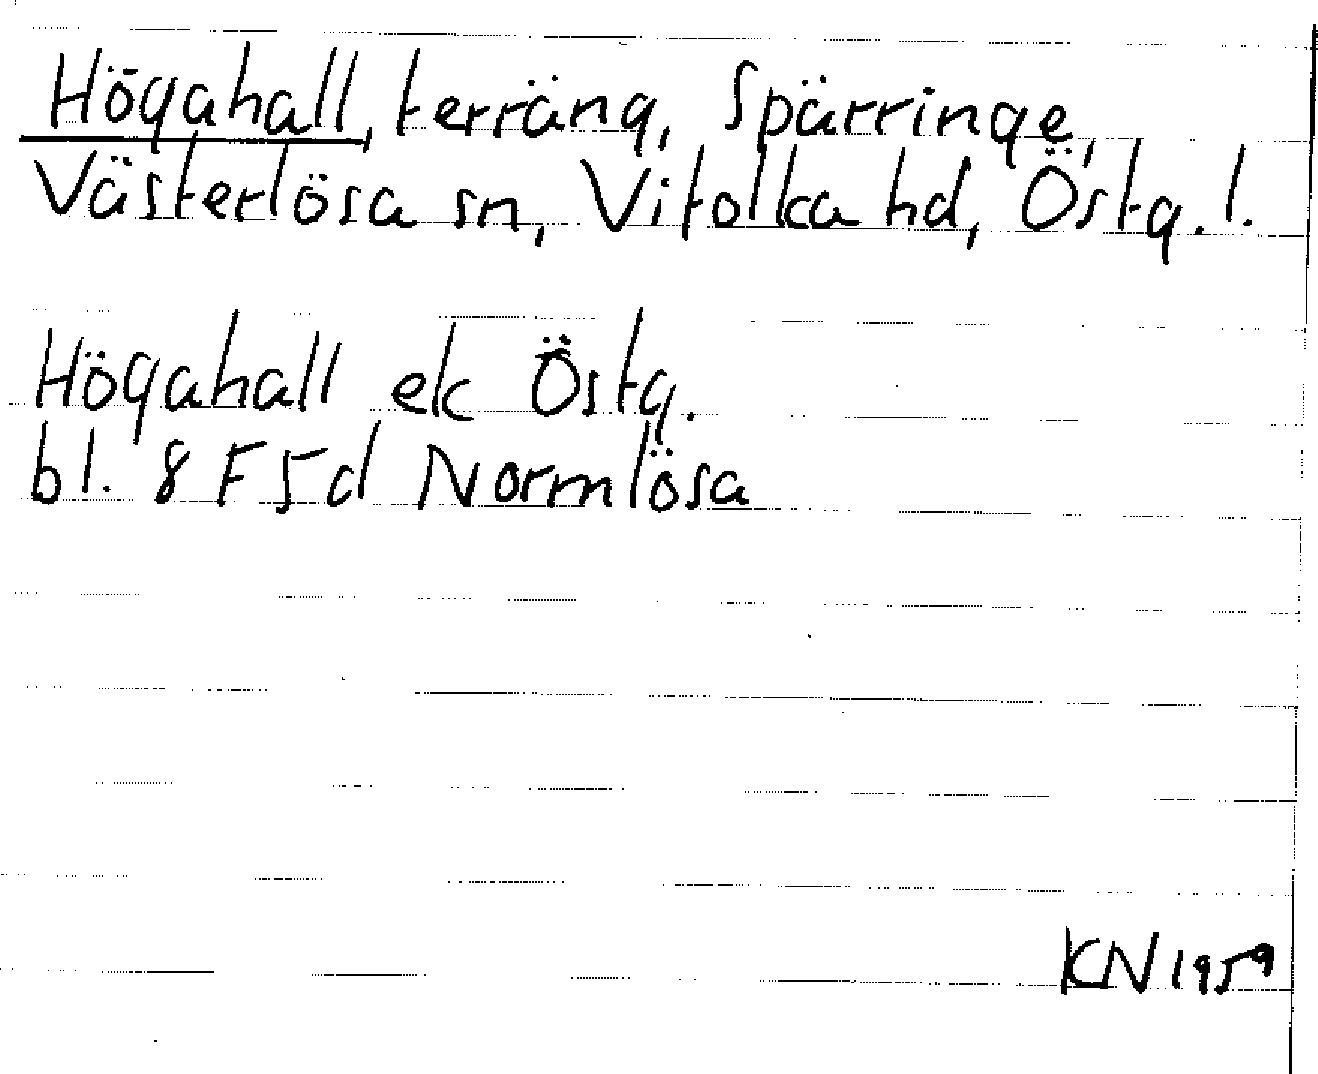 Högahall, terräng, Spärringe,
Västerlösa sn, Vifolka hd, Östg. l.
Högahall ek Östg.
bl. 8 F 5 d Normlösa
KN 1959